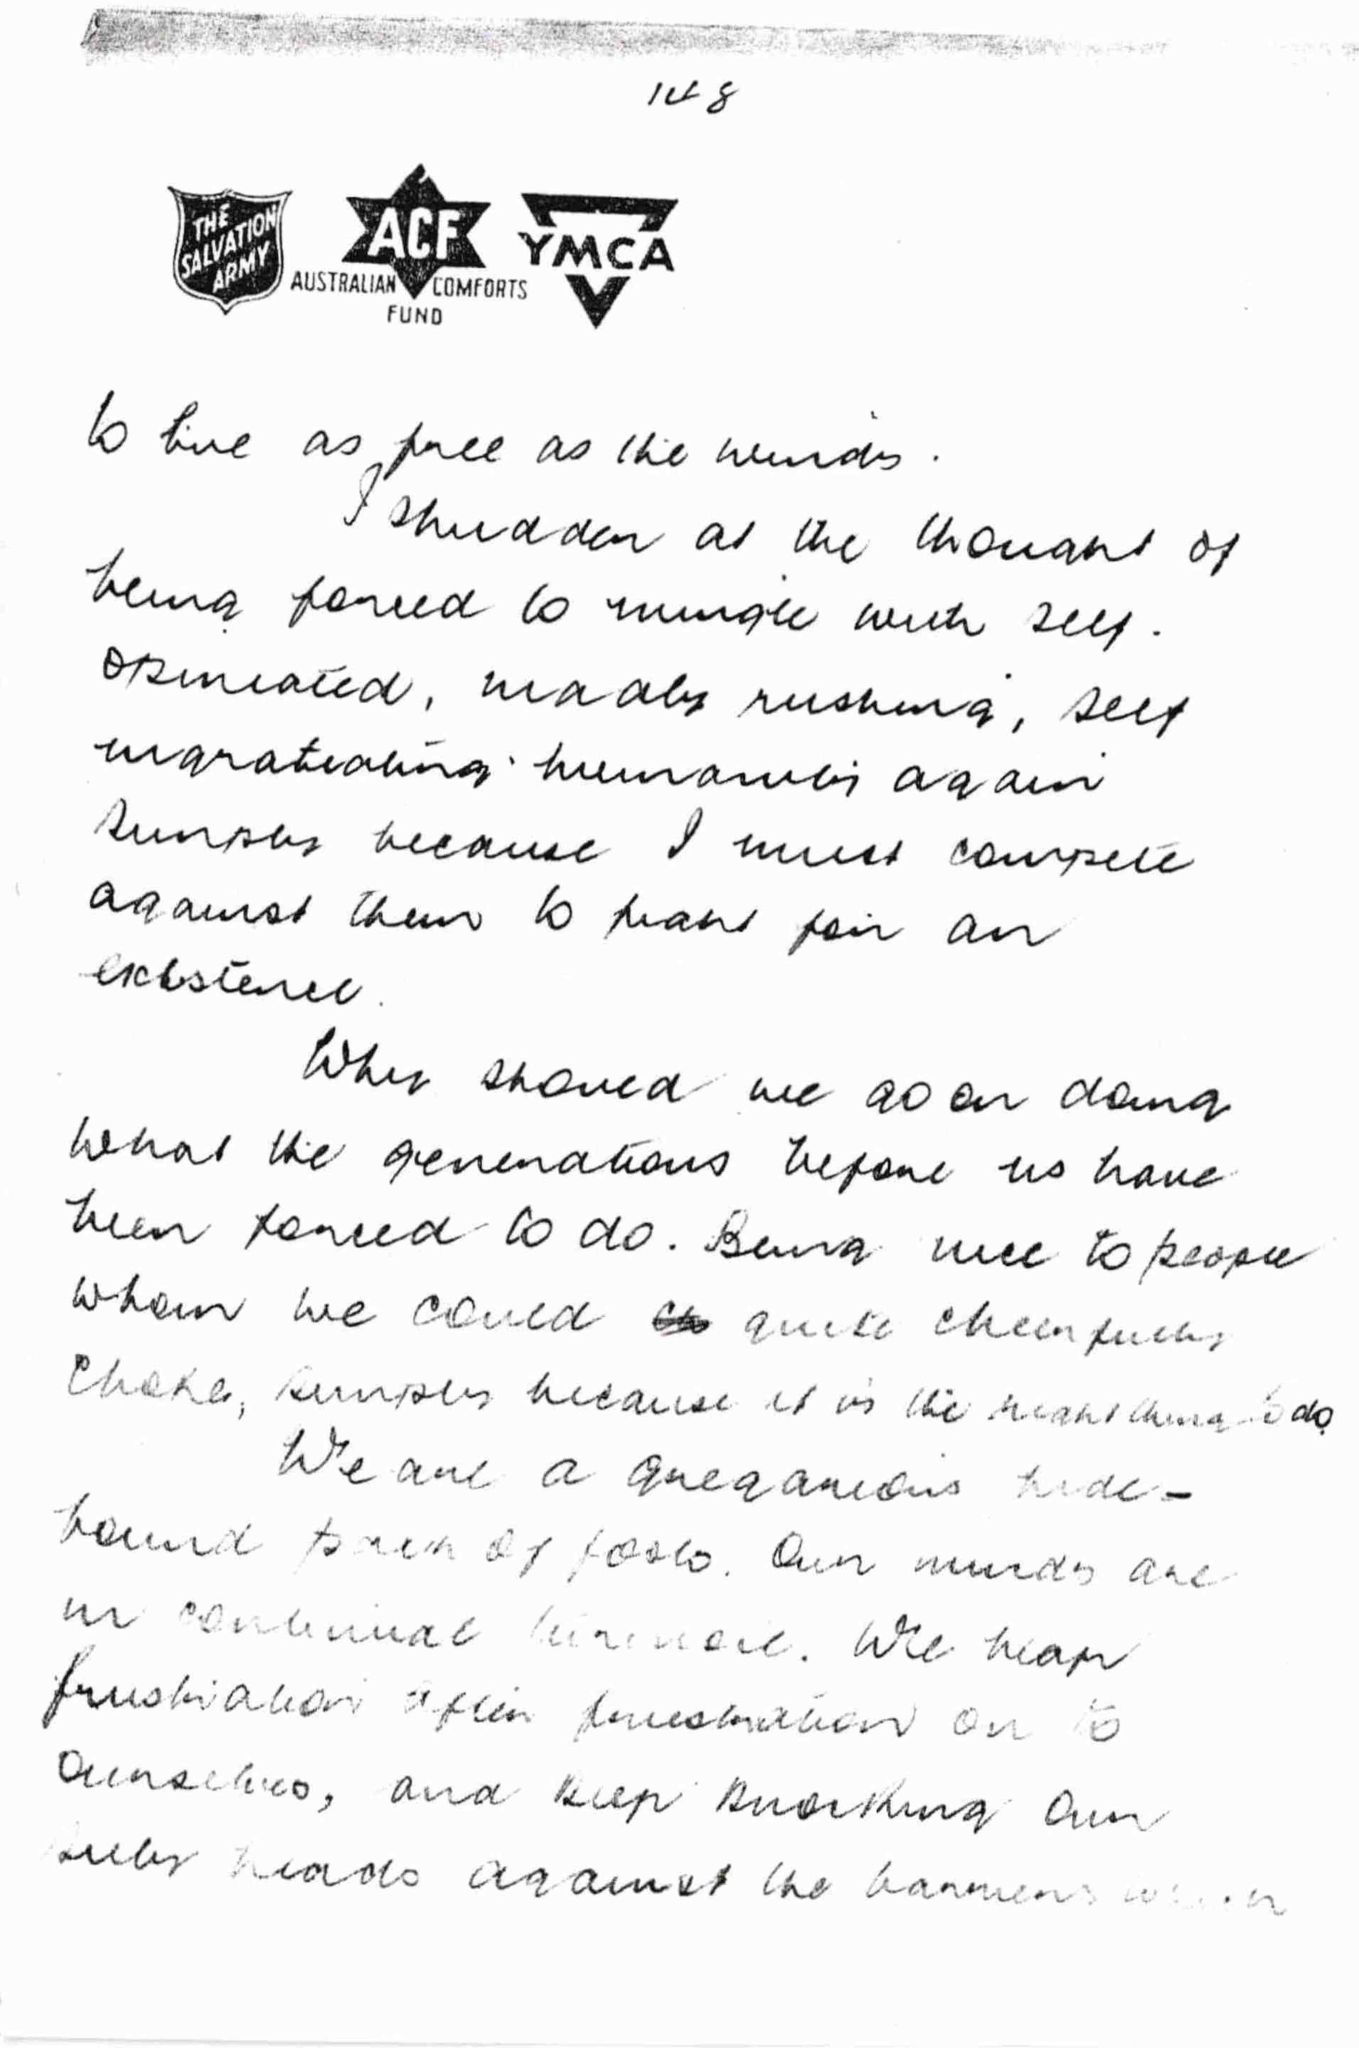 148
THE
SALVATION
ARMY
ACF
AUSTRALIAN COMFORTS
FUND
YMCA
to live as free as the winds.
I shudder at the thought of
being forced to mingle with self-
opinionated, madly rushing, self
ingratiating humanity again
simply because I must compete
against them to fight for an
existence.
Why should we go on doing
what the generations before us have
been forced to do. Being nice to people
whom we could quite cheerfully
choke, simply because it is the right thing to do.
We are a gregarious hide-
bound pack of fools. Our minds are
in continual turmoil. We heap
frustration after frustration on to
ourselves, and keep knocking our
silly heads against the barriers which